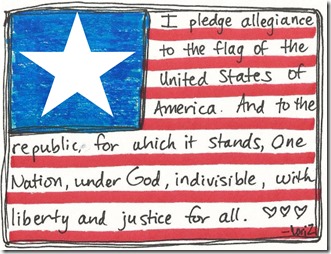 I pledge allegiance
to the flag of the
United States of
America. And to the
republic, for which it stands, One
Nation, under God, indivisible, with
liberty and justice for all. ♡♡♡